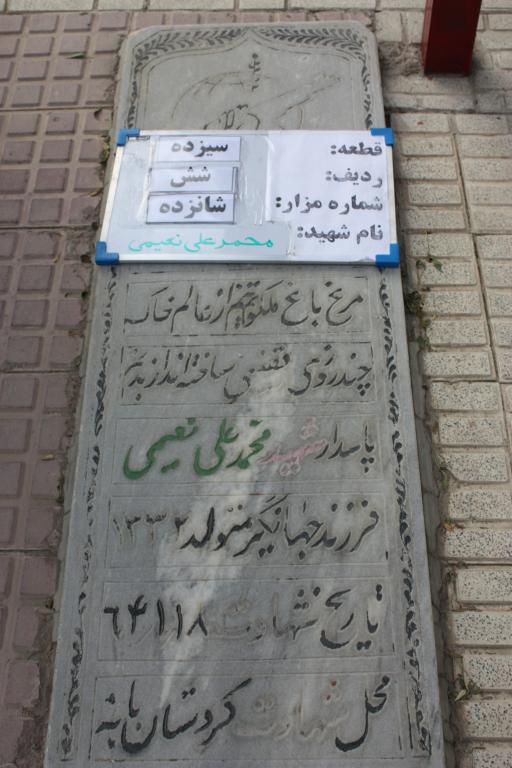 قطعه: سیزده
ردیف: شش
شماره مزار: شانزده
نام شهید: محمدعلی نعیمی
مرغ باغ ملکوتیم از عالم خاک
چند روزی قفسی ساخته‌اند از بدنم
پاسدار شهید محمدعلی نعیمی
فرزند جهانگیر متولد ۱۳۳۲
تاریخ شهادت ۶۴/۱/۱۸
محل شهادت کردستان بانه